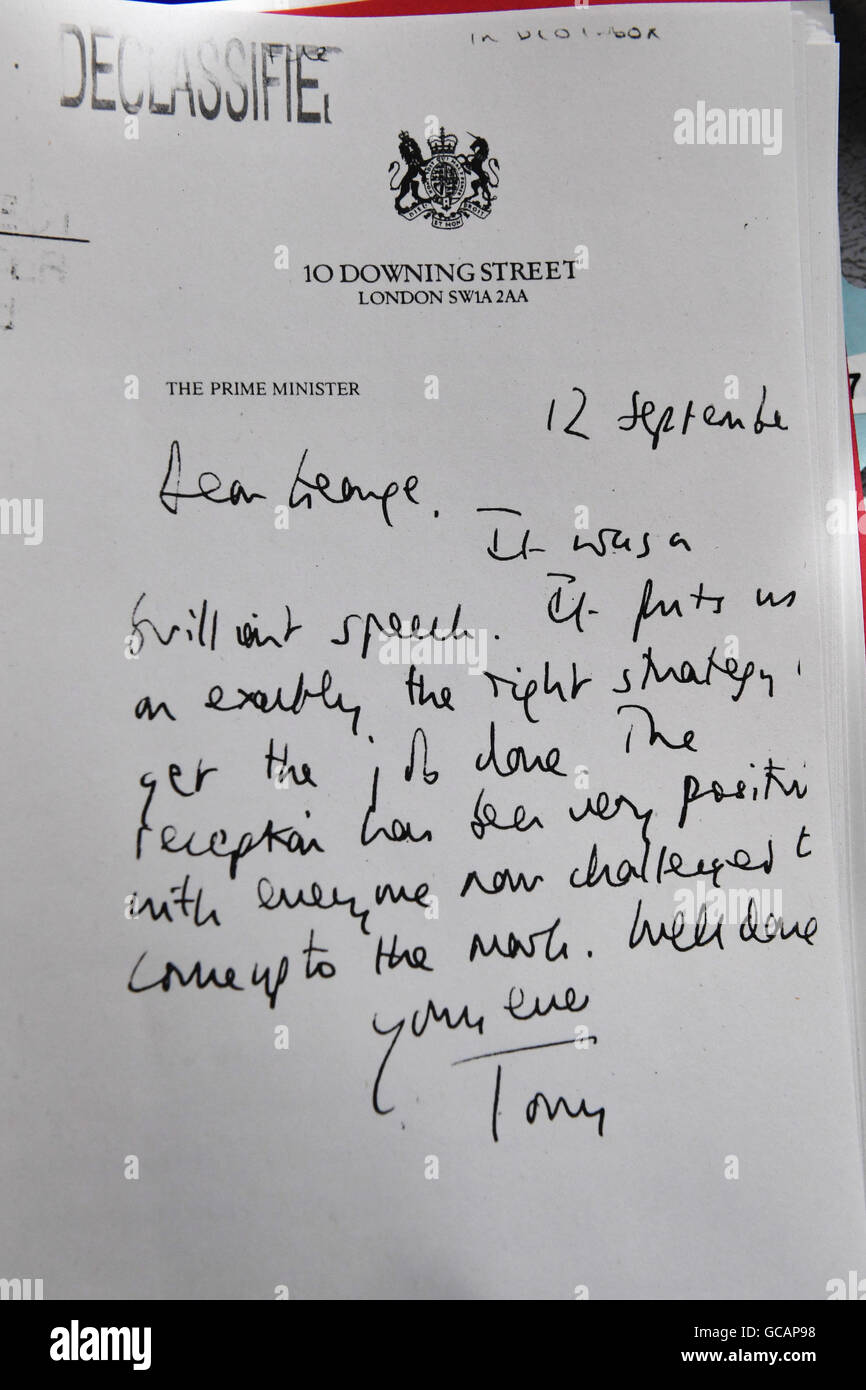 DECLASSIFIED
10 DOWNING STREET
LONDON SW1A 2AA
THE PRIME MINISTER
12 September
Dear George.
It was a
brilliant speech. It puts us
on exactly the right strategy
get the job done. The
reception has been very positive
with everyone now challenged t
come up to the mark. Well done
yours ever
Tony
7
a alamy stock photo
GCAP98
www.alamy.com